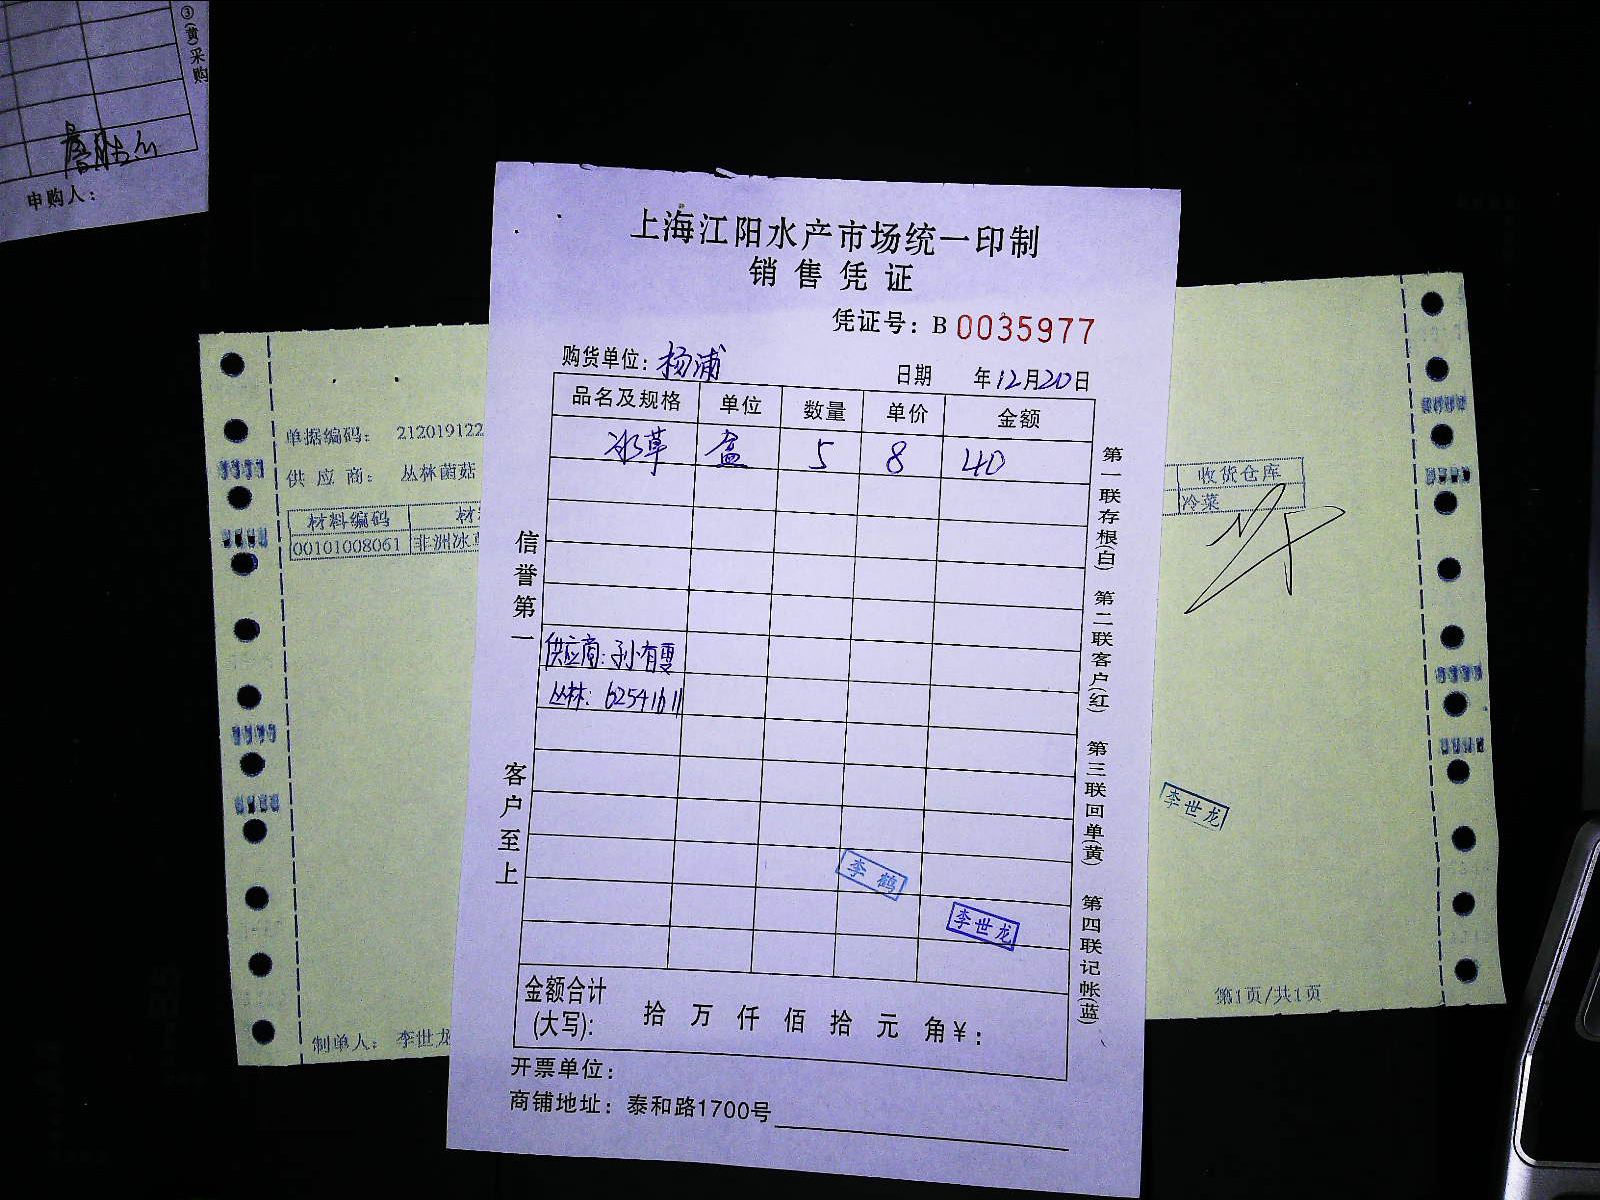 ③(黄)采购
申购人：
上海江阳水产市场统一印制
销售凭证
凭证号：B 0035977
购货单位：杨浦
日期 年12月20日
品名及规格 单位 数量 单价 金额
冰草 盒 5 8 40
供应商：孙有雯
丛林：62541611
信誉第一
客户至上
第一联存根(白) 第二联客户(红) 第三联回单(黄) 第四联记帐(蓝)
李鹤
李世龙
金额合计
(大写)：
拾 万 仟 佰 拾 元 角￥：
开票单位：
商铺地址：泰和路1700号
单据编码： 212019122
供应商： 丛林菌菇
材料编码 材
00101008061 非洲冰
制单人： 李世龙
收货仓库
冷菜
李世龙
第1页/共1页